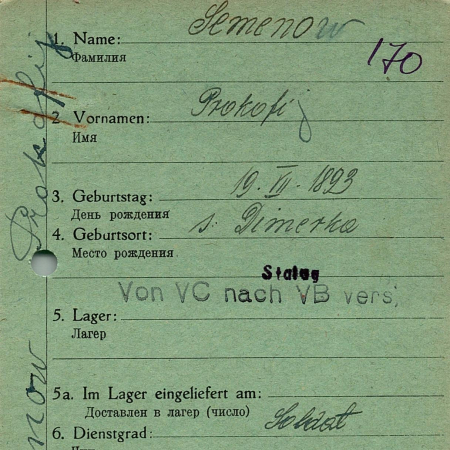 1. Name: Semenow
Фамилия
170
2. Vornamen: Prokofij
Имя
3. Geburtstag: 19. VII. 1893
День рождения
4. Geburtsort: s. Dimerka
Место рождения
Stalag
Von VC nach VB vers.
5. Lager:
Лагерь
5a. Im Lager eingeliefert am:
Доставлен в лагерь (число)
6. Dienstgrad: Soldat
Prokofij
now